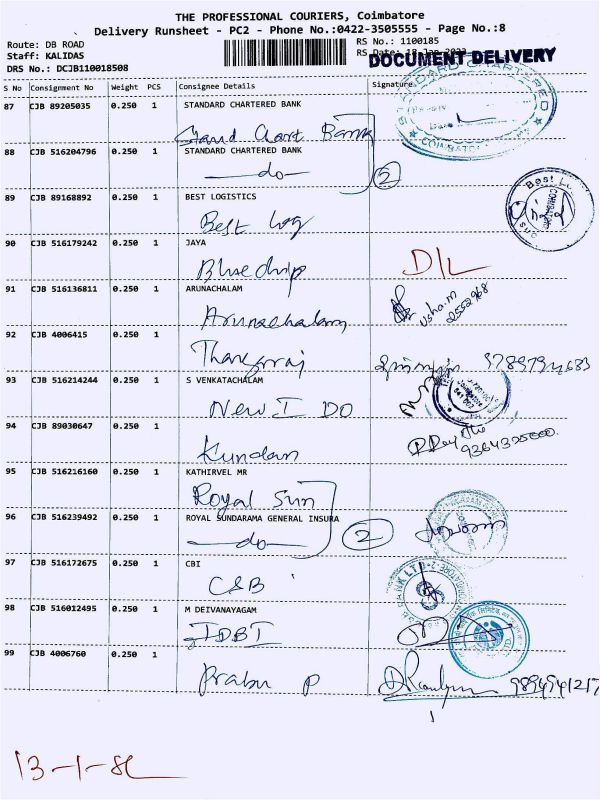 THE PROFESSIONAL COURIERS, Coimbatore
Delivery Runsheet - PC2 - Phone No.:0422-3505555 - Page No.:8
Route: DB ROAD
RS No.: 1100185
Staff: KALIDAS
RS
DOCUMENT DELIVERY
DRS No.: DCJB110018508
S No Consignment No Weight PCS Consignee Details Signature
87 CJB 89205035 0.250 1 STANDARD CHARTERED BANK
Stand Chart Bank
88 CJB 516204796 0.250 1 STANDARD CHARTERED BANK
do
2
89 CJB 89168892 0.250 1 BEST LOGISTICS
Best Log
90 CJB 516179242 0.250 1 JAYA
Bluechip D/L
91 CJB 516136811 0.250 1 ARUNACHALAM
Arunachalam
Usha.M
92 CJB 4006415 0.250 1
Thangaraj
93 CJB 516214244 0.250 1 S VENKATACHALAM
New I DO
94 CJB 89030647 0.250 1
Kundan
9364325000
95 CJB 516216160 0.250 1 KATHIRVEL MR
Royal Sun
96 CJB 516239492 0.250 1 ROYAL SUNDARAMA GENERAL INSURA
do
2
97 CJB 516172675 0.250 1 CBI
CSB
98 CJB 516012495 0.250 1 M DEIVANAYAGAM
IDBI
99 CJB 4006760 0.250 1
Prabu P